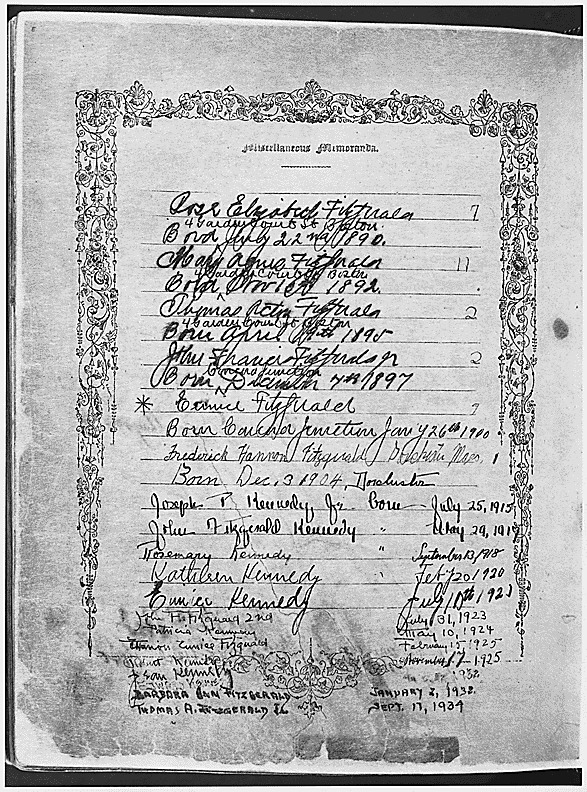 Miscellaneous Memoranda.
Rose Elizabeth Fitzgerald 7
4 Garden Court St Boston.
Born July 22nd 1890.
Mary Agnes Fitzgerald 11
4 Garden Court St Boston
Born Nov 1st 1892.
Thomas Acton Fitzgerald 2
4 Garden Court St Boston
Born April 1895
John Francis Fitzgerald Jr 2
Concord Junction
Born December 7th 1897
* Eunice Fitzgerald 7
Born Concord Junction Jan'y 26th 1900
Frederick Hannon Fitzgerald Mass. 1
Born Dec. 3 1904, Dorchester
Joseph P. Kennedy, Jr. born - July 25, 1915
John Fitzgerald Kennedy " May 29, 191
Rosemary Kennedy September 13/1918
Kathleen Kennedy " Feb'y 20 1920
Eunice Kennedy July 10th 1921
John F. Fitzgerald 2nd July 31, 1923
Patricia Kennedy May 10, 1924
Eunice Fitzgerald February 15 1925
Robert Kennedy November 1925
Jean Kennedy
BARBARA ANN FITZGERALD JANUARY 2, 1932
THOMAS A. FITZGERALD Jr. SEPT. 17, 1934